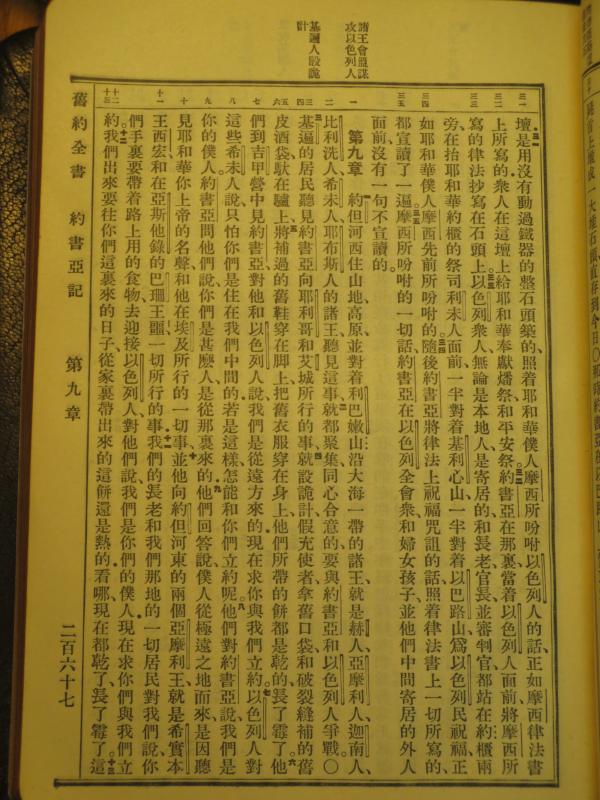 諸王會盟謀
攻以色列人
基遍人設詭
計
壇是用沒有動過鐵器的整石頭築的照着耶和華僕人摩西所吩咐以色列人的話正如摩西律法書
上所寫的衆人在這壇上給耶和華奉獻燔祭和平安祭約書亞在那裏當着以色列人面前將摩西所
寫的律法抄寫在石頭上以色列衆人無論是本地人是寄居的和長老官長並審判官都站在約櫃兩
旁在抬耶和華約櫃的祭司利未人面前一半對着基利心山一半對着以巴路山爲以色列民祝福正
如耶和華僕人摩西先前所吩咐的隨後約書亞將律法上祝福咒詛的話照着律法書上一切所寫的
都宣讀了一遍摩西所吩咐的一切話約書亞在以色列全會衆和婦女孩子並他們中間寄居的外人
面前沒有一句不宣讀的
第九章 約但河西住山地高原並對着利巴嫩山沿大海一帶的諸王就是赫人亞摩利人迦南人
比利洗人希未人耶布斯人的諸王聽見這事就都聚集同心合意的要與約書亞和以色列人爭戰○
基遍的居民聽見約書亞向耶利哥和艾城所行的事就設詭計假充使者拿舊口袋和破裂縫補的舊
皮酒袋馱在驢上將補過的舊鞋穿在脚上把舊衣服穿在身上他們所帶的餅都是乾的長了霉了他
們到吉甲營中見約書亞對他和以色列人說我們是從遠方來的現在求你與我們立約以色列人對
這些希未人說只怕你們是住在我們中間的若是這樣怎能和你們立約呢他們對約書亞說我們是
你的僕人約書亞問他們說你們是甚麽人是從那裏來的他們回答說僕人從極遠之地而來是因聽
見耶和華你上帝的名聲和他在埃及所行的一切事並他向約但河東的兩個亞摩利王就是希實本
王西宏和在亞斯他錄的巴珊王噩一切所行的事我們的長老和我們那地的一切居民對我們說你
們手裏要帶着路上用的食物去迎接以色列人對他們說我們是你們的僕人現在求你們與我們立
約我們出來要往你們這裏來的日子從家裏帶出來的這餅還是熱的看哪現在都乾了長了霉了這
舊約全書 約書亞記 第九章 二百六十七